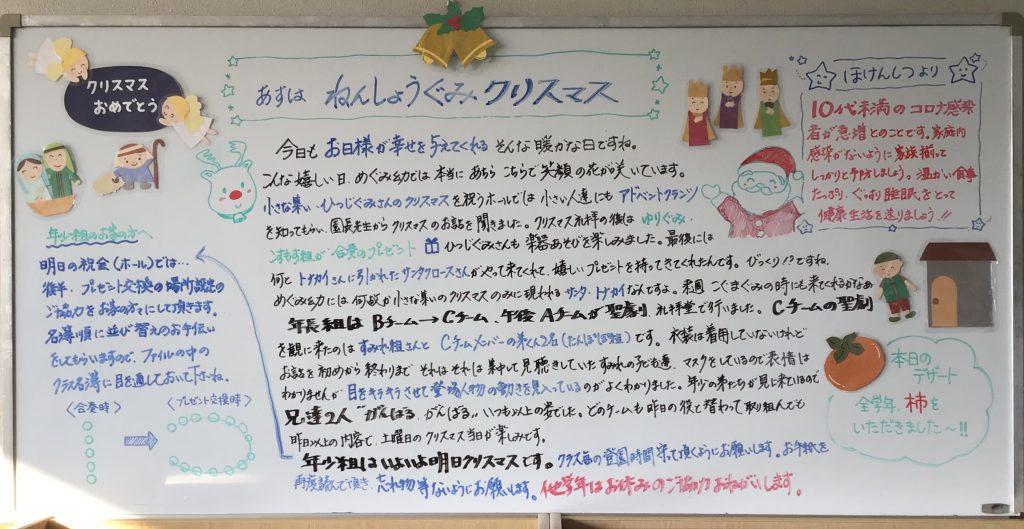 クリスマス
おめでとう
あすは ねんしょうぐみ クリスマス
ほけんしつより
10代未満のコロナ感染
者が急増とのことです。家庭内
感染がないように家族揃って
しっかりと予防しましょう。温かい食事
たっぷり、ぐっすり睡眠をとって
健康生活を送りましょう!!
今日も お日様が幸せを与えてくれる そんな暖かな日ですね。
こんな嬉しい日、めぐみ幼では 本当に あちら こちらで 笑顔の花が咲いています。
小さな集い・ひつじぐみさんのクリスマスを祝うホールでは 小さい人達にも アドベントクランツ
を知ってもらい、園長先生から クリスマスのお話を聞きました。クリスマス礼拝の後は ゆりぐみ
こすもす組が 合奏のプレゼント ひつじぐみさんも 楽器あそびを楽しみました。最後には
何と トナカイさんに引かれたサンタクロースさんがやって来てくれて、嬉しいプレゼントを持ってきてくれたんです。びっくり!?ですね。
めぐみ幼には 何故か小さな集いのクリスマスのみに現われる サンタ・トナカイなんですよ。来週 こぐまぐみの時にも来てくれるかなぁ
年長組は Bチーム→Cチーム、午後 Aチームが 聖劇、礼拝堂で行いました。Cチームの聖劇
を観に来たのは すみれ組さんと Cチームメンバーの弟くん2名(たんぽぽ組)です。衣装は着用していないけれど
お話を初めから終わりまで それはそれは集中して見聴きしていた すみれの子ども達、マスクをしているので表情は
わかりませんが 目をキラキラさせて登場人物の動きを見入っているのがよくわかりました。年少の弟たちが見に来ているので
兄達2人 "がんばる、がんばる"。いつも以上の姿でした。どのチームも昨日の役と替わって取り組んでも
昨日以上の内容で、土曜日のクリスマス当日が楽しみです。
年少組はいよいよ明日クリスマスです。クラス毎の登園時間 守って頂くようにお願いします。お手紙を
再度読んで頂き、忘れ物等ないようにお願いします。他学年はお休みのご協力おねがいします。
年少組のお家の方へ
明日の祝会(ホール)では…
後半、プレゼント交換の場所設定の
ご協力をお家の方々にして頂きます。
名簿順に並び替えのお手伝い
をしてもらいますので、ファイルの中の
クラス名簿に目を通しておいて下さいね。
〈合奏時〉 〈プレゼント交換時〉
本日の
デザート
全学年、柿を
いただきました〜!!